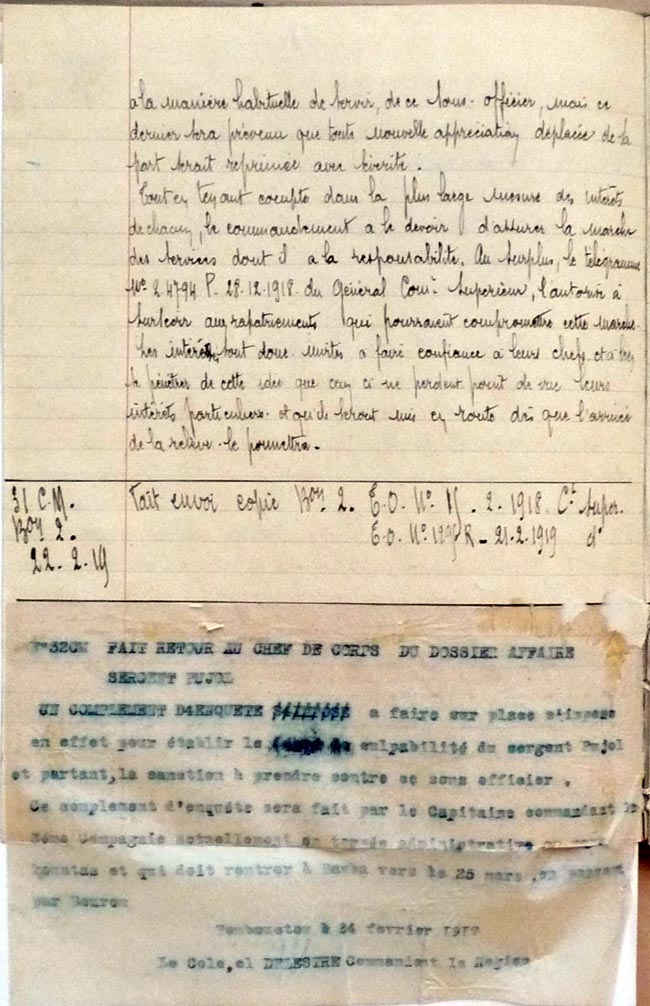 à la manière habituelle de servir, de ce sous-officier, mais ce
dernier sera prévenu que toute nouvelle appréciation déplacée de la
part serait réprimée avec sévérité.
Tout en tenant compte dans la plus large mesure des intérêts
de chacun, le commandement a le devoir d'assurer la marche
des services dont il a la responsabilité. Au surplus, le télégramme
No 2.4794 P. 28.12.1918 du Général Comt Supérieur, l'autorise à
surseoir aux rapatriements qui pourraient compromettre cette marche.
Les intéressés sont donc invités à faire confiance à leurs chefs et à
se pénétrer de cette idée que ceux ci ne perdent point de vue leurs
intérêts particuliers et qu'ils seront mis en route dès que l'arrivée
de la relève le permettra.
31 C.M. Fait envoi copie Bon 2. T.O. No 2. 1918 Ct Super.
Bon 2. T.O. No R - 21-2-1919 do
22-2-19
No 32CM FAIT RETOUR AU CHEF DE CORPS DU DOSSIER AFFAIRE
SERGENT PUJOL
UN COMPLEMENT D4ENQUETE a faire sur place s'impose
en effet pour établir la culpabilité du sergent Pujol
et partant, la sanction à prendre contre ce sous officier .
Ce complement d'enquête sera fait par le Capitaine commandant la
2ème Compagnie actuellement en tournée administrative en pays
kountas et qui doit rentrer à Bamba vers le 25 mars ,en passant
par Bourem
Tombouctou à 24 février 1919
Le Colo,el DELESTRE Commandant la Région